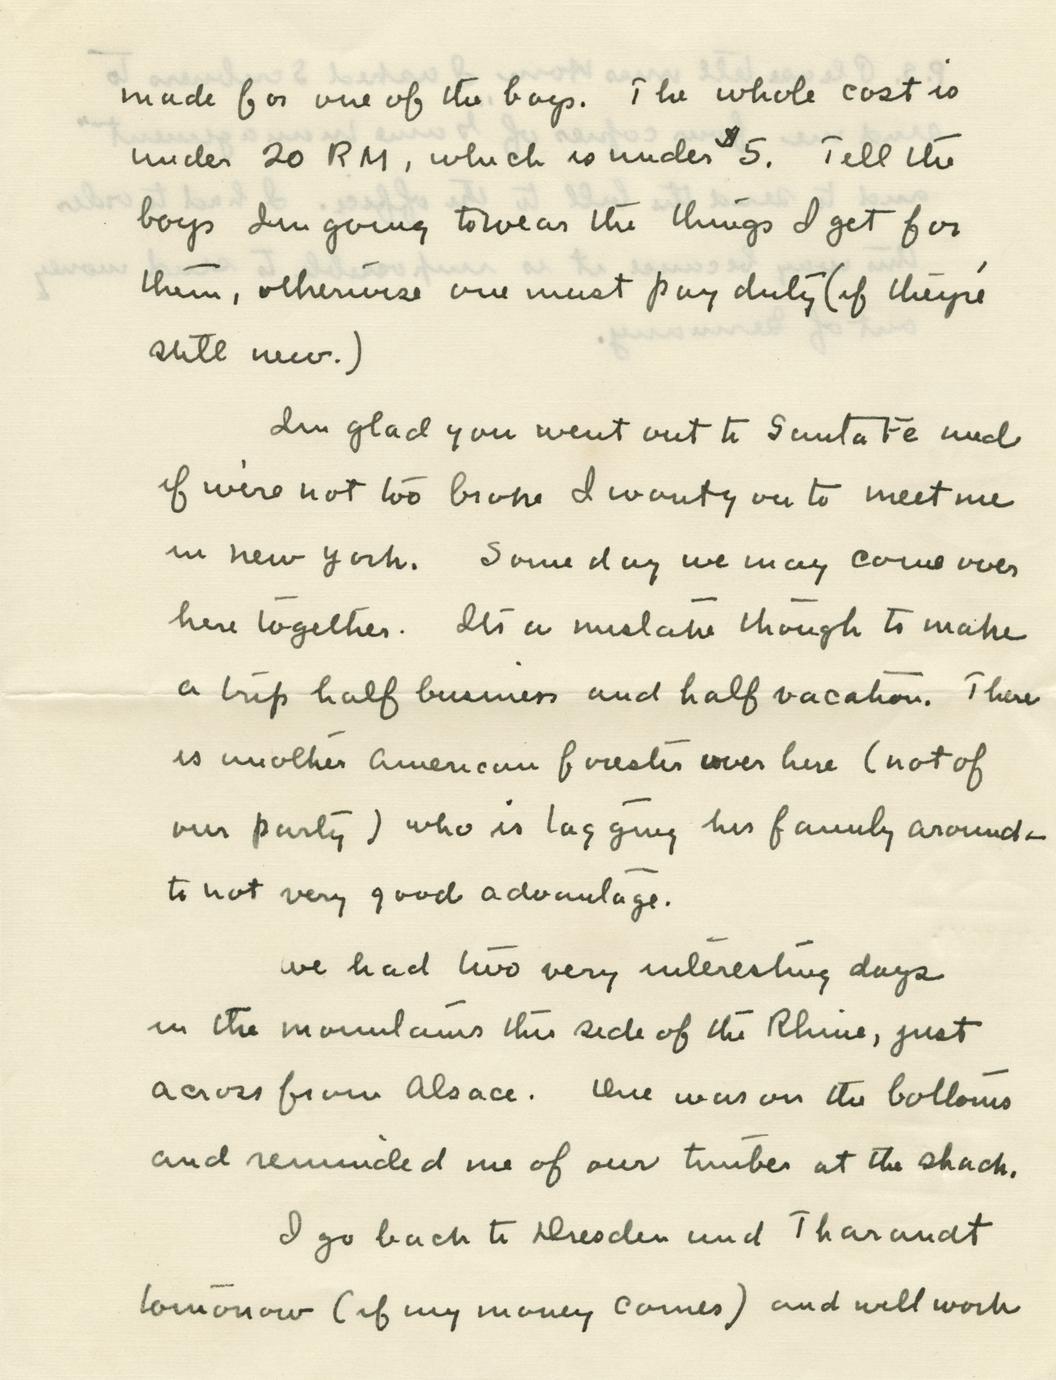 made for one of the boys. The whole cost is
under 20 RM, which is under $5. Tell the
boys I'm going to wear the things I get for
them, otherwise one must pay duty (if they're
still new.)
I'm glad you went out to Santa Fe and
if we're not too broke I want you to meet me
in New York. Some day we may come over
here together. It's a mistake though to make
a trip half business and half vacation. There
is another American forester over here (not of
our party) who is lagging his family around -
to not very good advantage.
We had two very interesting days
in the mountains this side of the Rhine, just
across from Alsace. One was on the bottoms
and reminded me of our timber at the shack.
I go back to Dresden and Tharandt
tomorrow (if my money comes) and will work